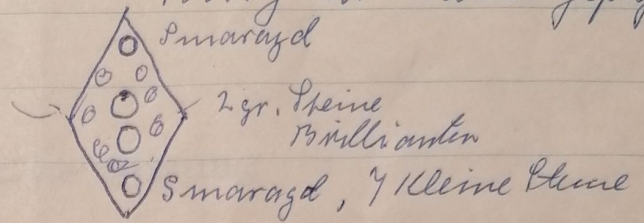 Smaragd
2 gr. Steine
Brillianten
Smaragd, 7 Kleine Steine